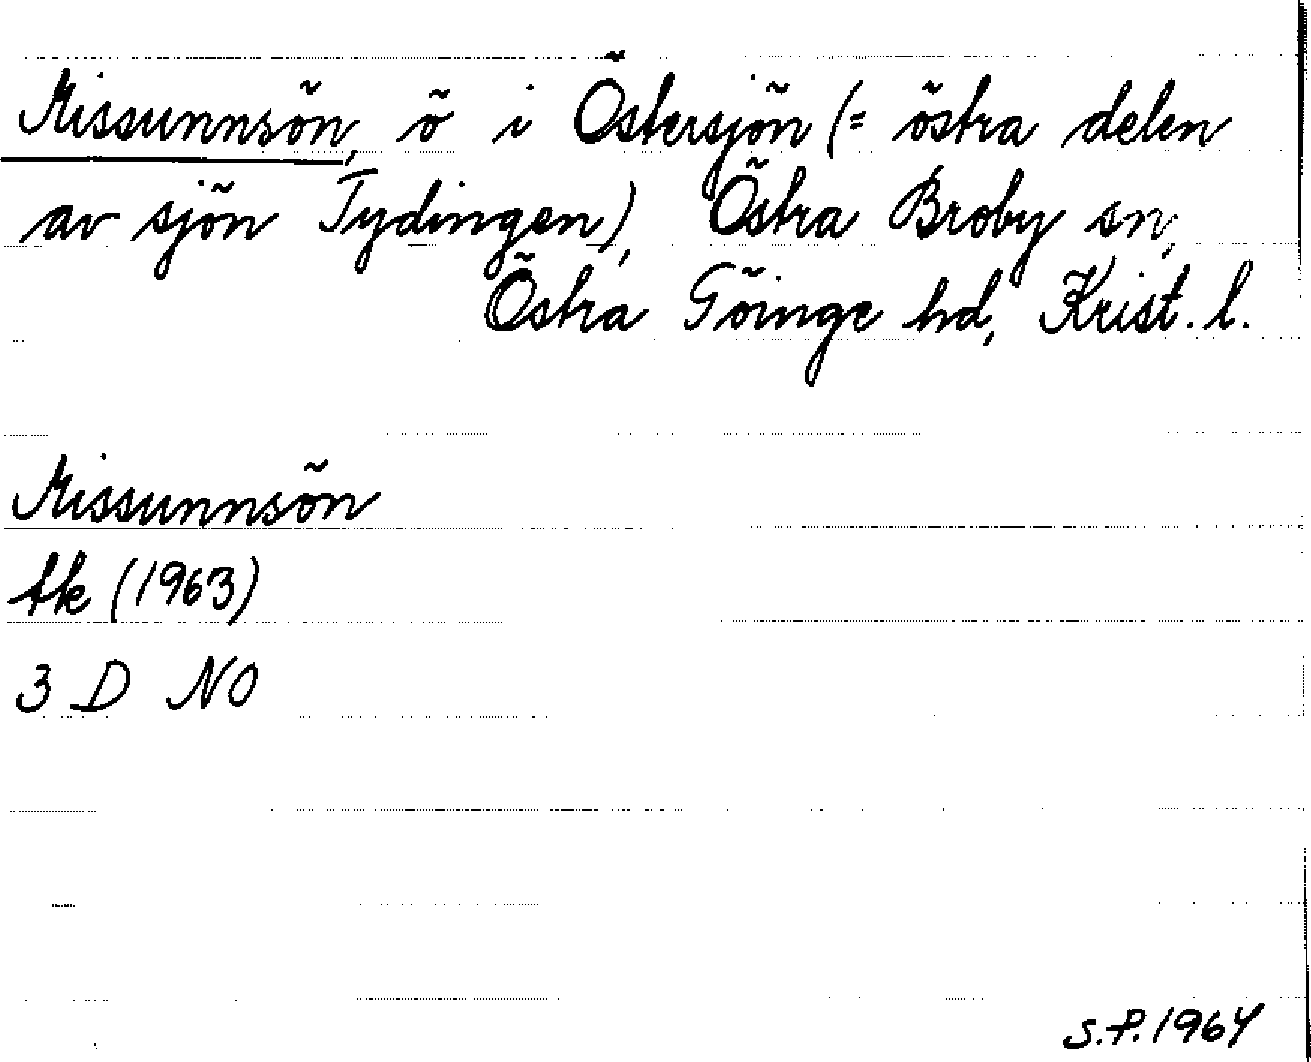 Missunnsön, ö i Östersjön (= östra delen
av sjön Tydingen), Östra Broby sn,
Östra Göinge hd, Krist. l.
Missunnsön
tk (1963)
3 D NO
S.P. 1964